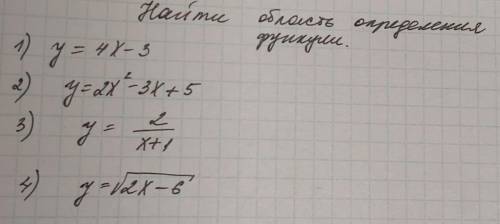 Найти область определения
функции.
1) y = 4x - 3
2) y = 2x² - 3x + 5
3) y = 2/(x+1)
4) y = √(2x - 6)